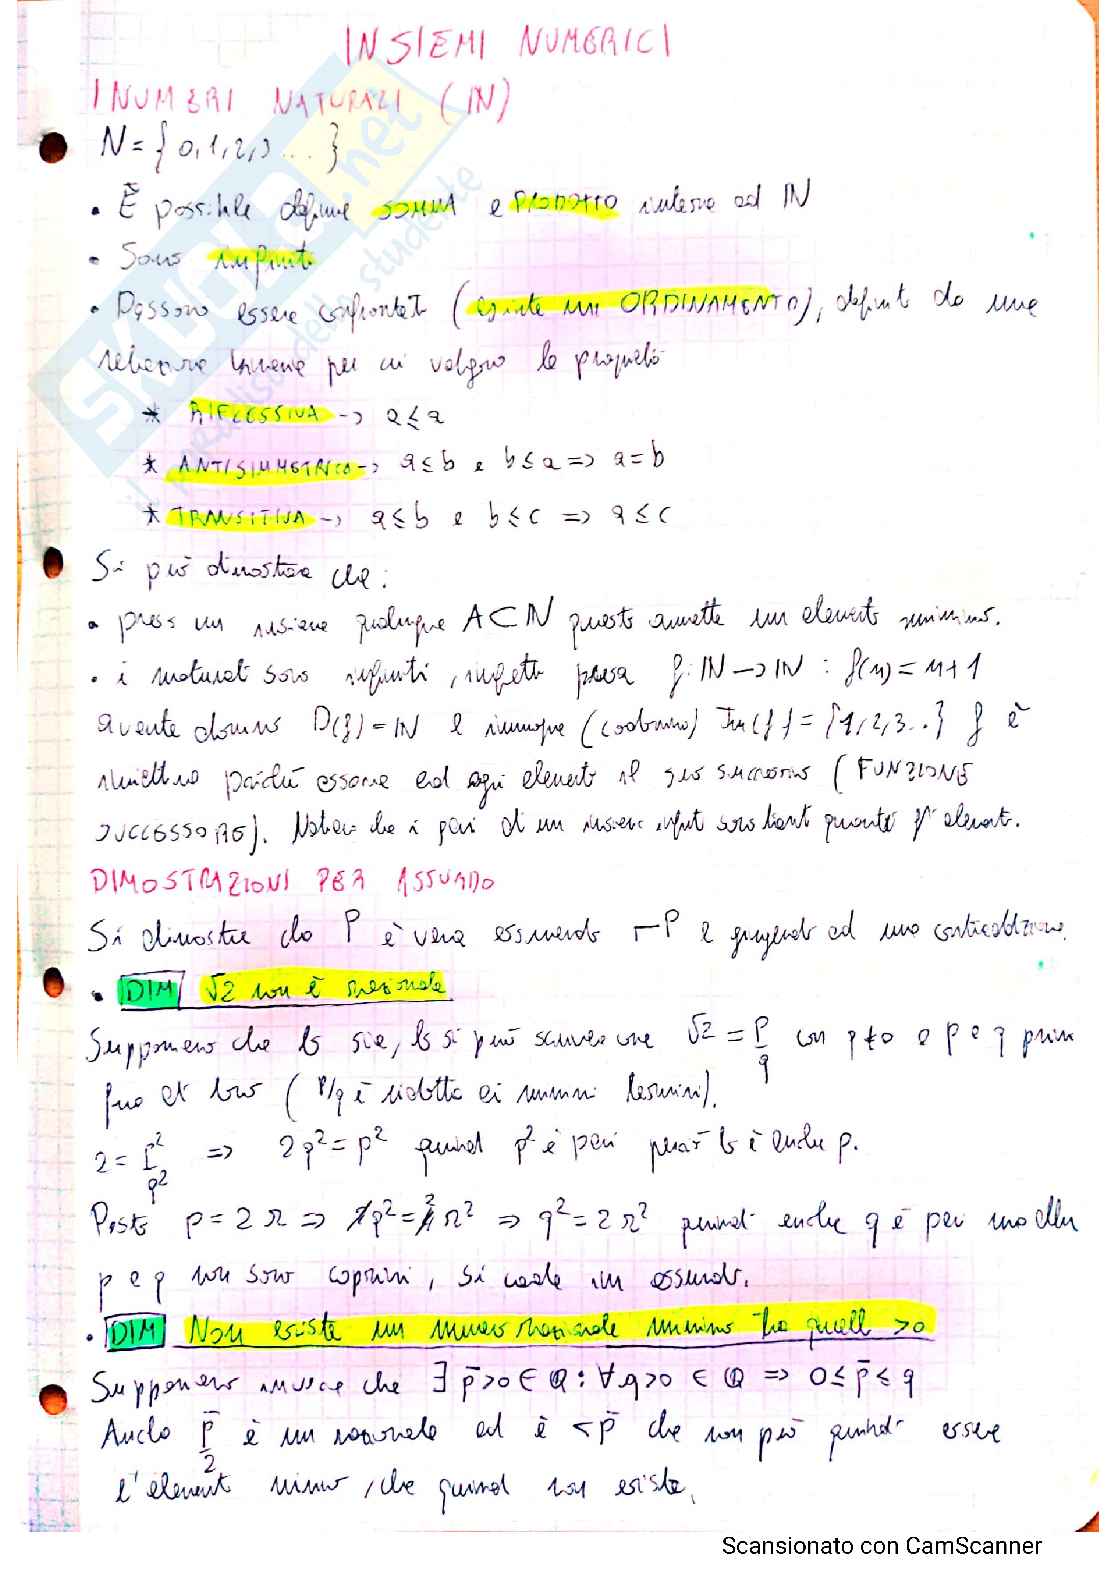 INSIEMI NUMERICI
I NUMERI NATURALI (IN)
N = { 0, 1, 2, 3 ... }
• È possibile definire SOMMA e PRODOTTO interne ad IN
• Sono infiniti
• Possono essere confrontati (esiste un ORDINAMENTO), definiti da una
relazione binaria per cui valgono le proprietà
* RIFLESSIVA -> a ≤ a
* ANTISIMMETRICA -> a ≤ b e b ≤ a => a = b
* TRANSITIVA -> a ≤ b e b ≤ c => a ≤ c
Si può dimostrare che:
• preso un insieme qualunque A ⊂ IN questo ammette un elemento minimo.
• i naturali sono infiniti, infatti presa f: IN -> IN : f(n) = n+1
avente dominio D(f) = IN e immagine (codominio) Im(f) = {1, 2, 3...} f è
iniettiva poiché associa ad ogni elemento il suo successivo (FUNZIONE
SUCCESSORE). che i pari di un insieme sono tanti quanti elementi.
DIMOSTRAZIONI PER ASSURDO
Si dimostra che P è vera assumendo ¬P e giungendo ad una contraddizione.
• DIM √2 non è razionale
Supponiamo che lo sia, lo si può scrivere come √2 = p/q con q≠0 e p e q primi
fra di loro ( p/q è ridotta ai minimi termini).
2 = p²/q² => 2q² = p² quindi p² è pari perciò lo è anche p.
Posto p = 2r => 2q² = 4r² => q² = 2r² quindi anche q è pari ma allora
p e q non sono coprimi, si cade in assurdo.
• DIM Non esiste un numero razionale minimo tra quelli >0
Supponiamo invece che ∃ p̄>0 ∈ Q : ∀ q>0 ∈ Q => 0 ≤ p̄ ≤ q
Anche p̄/2 è un razionale ed è < p̄ che non può quindi essere
l'elemento minimo, che quindi non esiste.
SKUOLA.net
il paradiso dello studente
Scansionato con CamScanner